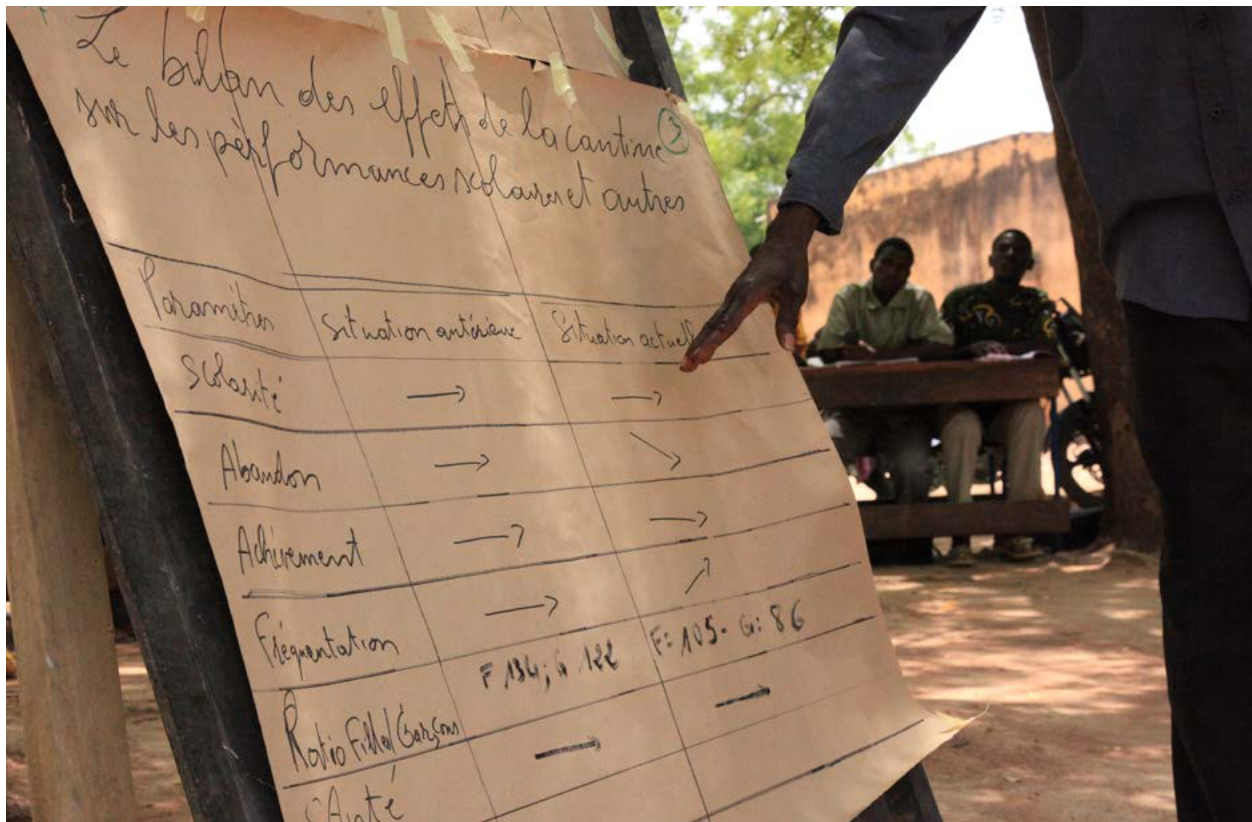 Le bilan des effets de la cantine 3
sur les performances scolaires et autres
Paramètres situation antérieure Situation actuell
Scolarité → →
Abandon → ↘
Achèvement → →
Fréquentation → ↗
Ratio Filles/Garçons F 134; G 122 F: 105- G: 86
Santé → →